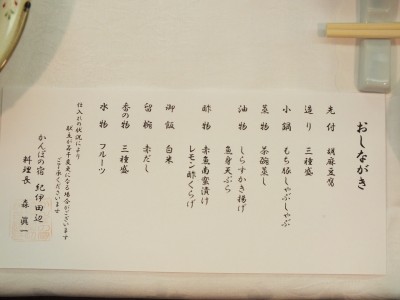 おしながき
先付 胡麻豆腐
造り 三種盛
小鍋 もち豚しゃぶしゃぶ
蒸物 茶碗蒸し
油物 しらすかき揚げ
魚身天ぷら
酢物 赤魚南蛮漬け
レモン酢くらげ
御飯 白米
留椀 赤だし
香の物 三種盛
水物 フルーツ
仕入れの状況により
献立が若干変更になる場合がございます
ご了承くださいませ
かんぽの宿 紀伊田辺
料理長 森 眞一